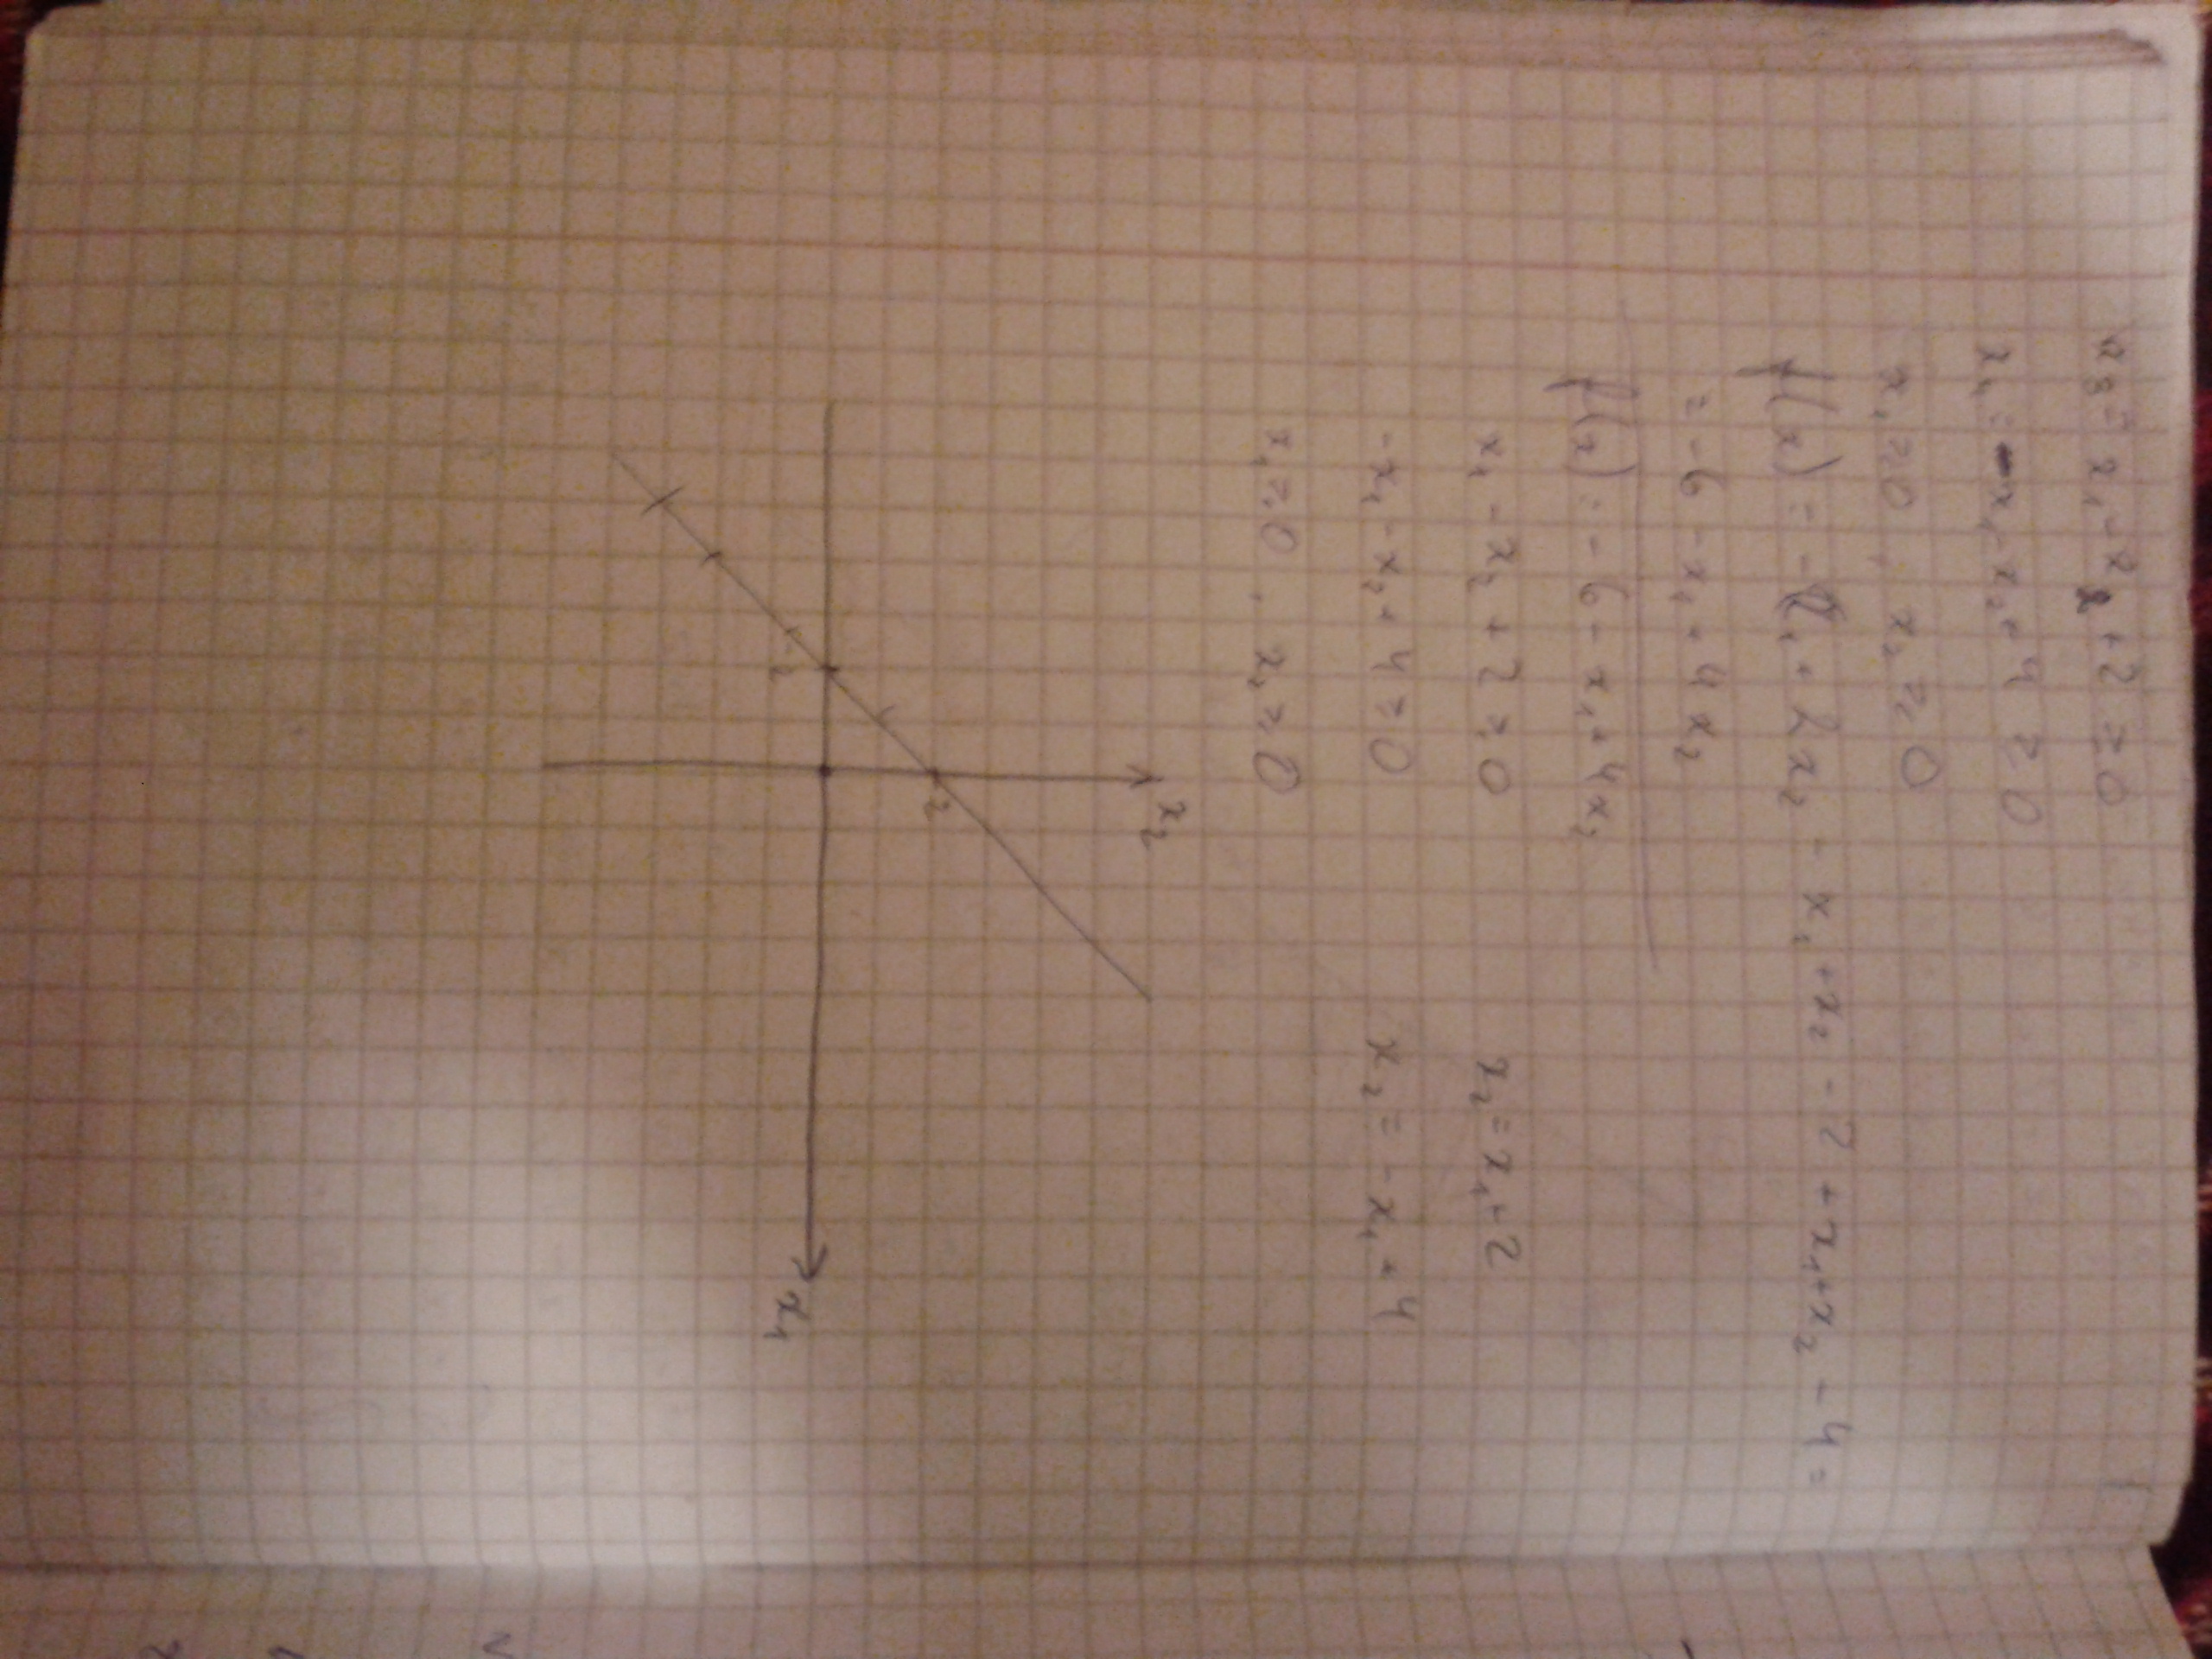 x₃ = x₁ - x₂ + 2 ≥ 0
x₄ = -x₁ - x₂ + 4 ≥ 0
x₁ ≥ 0, x₂ ≥ 0
f(x) = -x₁ + 2x₂ - x₁ + x₂ - 2 + x₁ + x₂ - 4 =
= -6 - x₁ + 4x₂
f(x) = -6 - x₁ + 4x₂
x₁ - x₂ + 2 ≥ 0 x₂ = x₁ + 2
-x₁ - x₂ + 4 ≥ 0 x₂ = -x₁ + 4
x₁ ≥ 0, x₂ ≥ 0
x₂
2
2
x₁